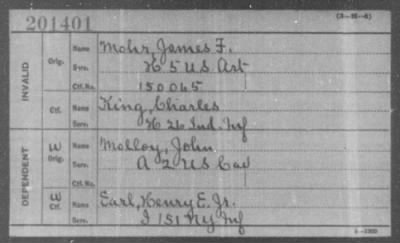 201401
(3—16—6)
INVALID
Orig. Name Mohr, James F.
Serv. H 5 US Art
Ctf. No. 150045
Ctf. Name King, Charles
Serv. H 26 Ind. Inf
DEPENDENT
W Orig. Name Molloy, John
Serv. A 2 US Cav
Ctf. No.
W Ctf. Name Earl, Henry E. Jr.
Serv. I 151 Ny Inf